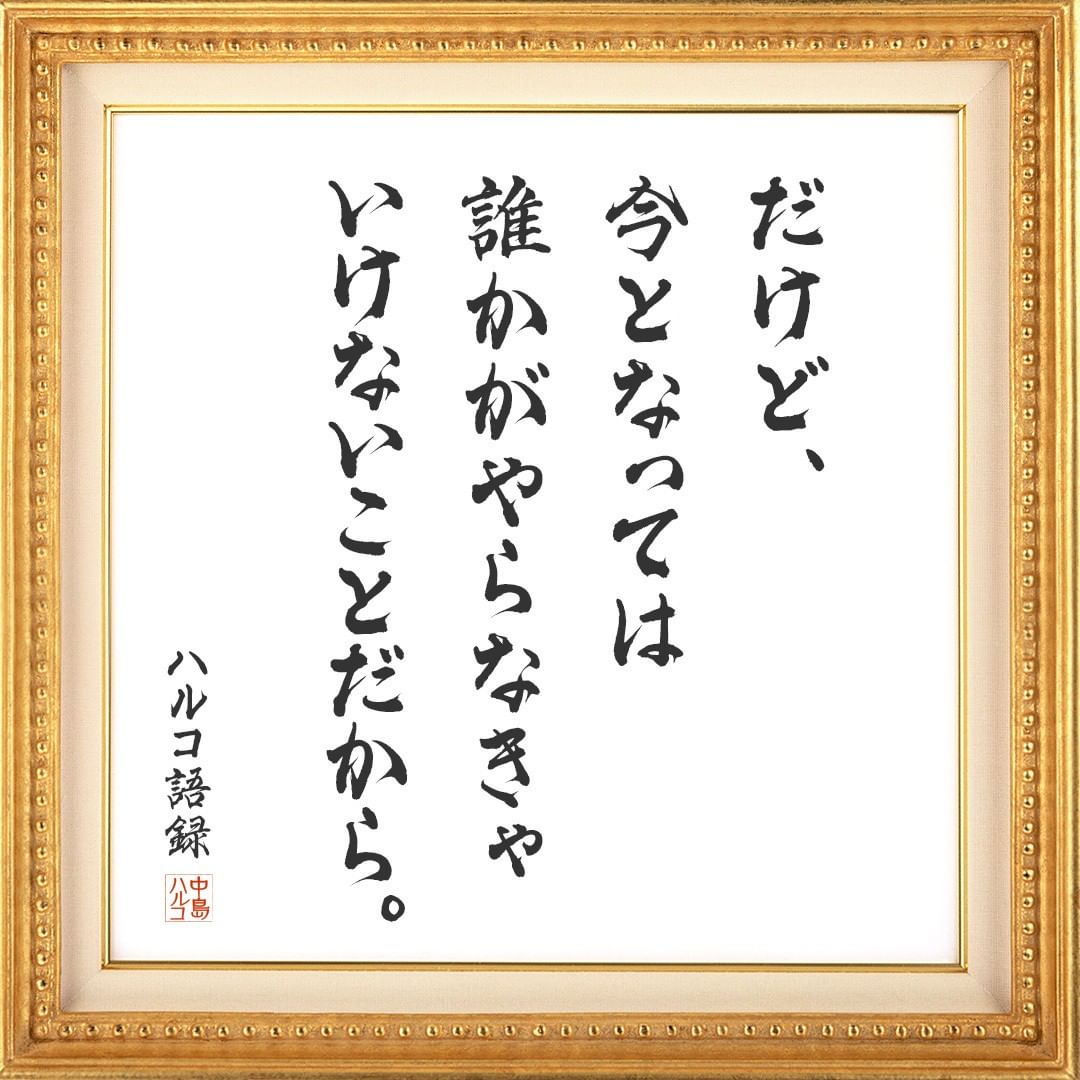 だけど、
今となっては
誰かがやらなきゃ
いけないことだから。
ハルコ語録
中島
ハルコ